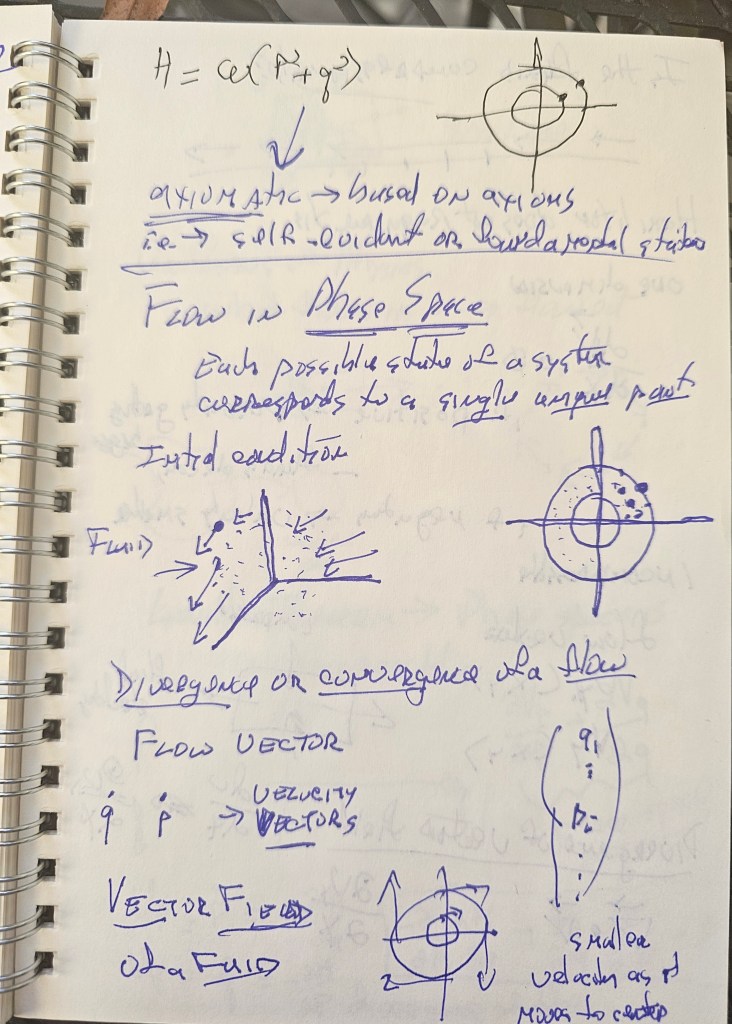 H = ω(p² + q²)
AXIOMATIC → based on axioms
ie → self-evident or fundamental
FLOW IN Phase Space
Each possible state of a system
corresponds to a single unique point
Initial condition
FLUID
Divergence or convergence of a flow
FLOW VECTOR
q̇ ṗ → VELOCITY
VECTORS
qi
⋮
pi
⋮
VECTOR FIELD
of a FLUID
smaller
velocity as pt
moves to center